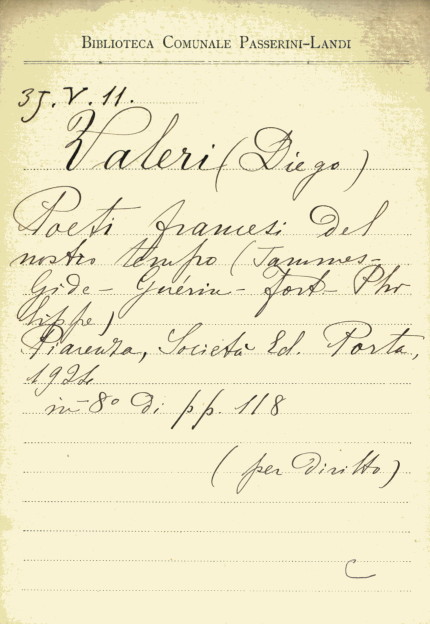 BIBLIOTECA COMUNALE PASSERINI-LANDI
3J.V.11.
Valeri (Diego)
Poeti francesi del
nostro tempo (Jammes-
Gide - Guérin - Fort - Phi
lippe)
Piacenza, Società Ed. Porta,
1924
in-8º di pp. 118
(per diritto)
C